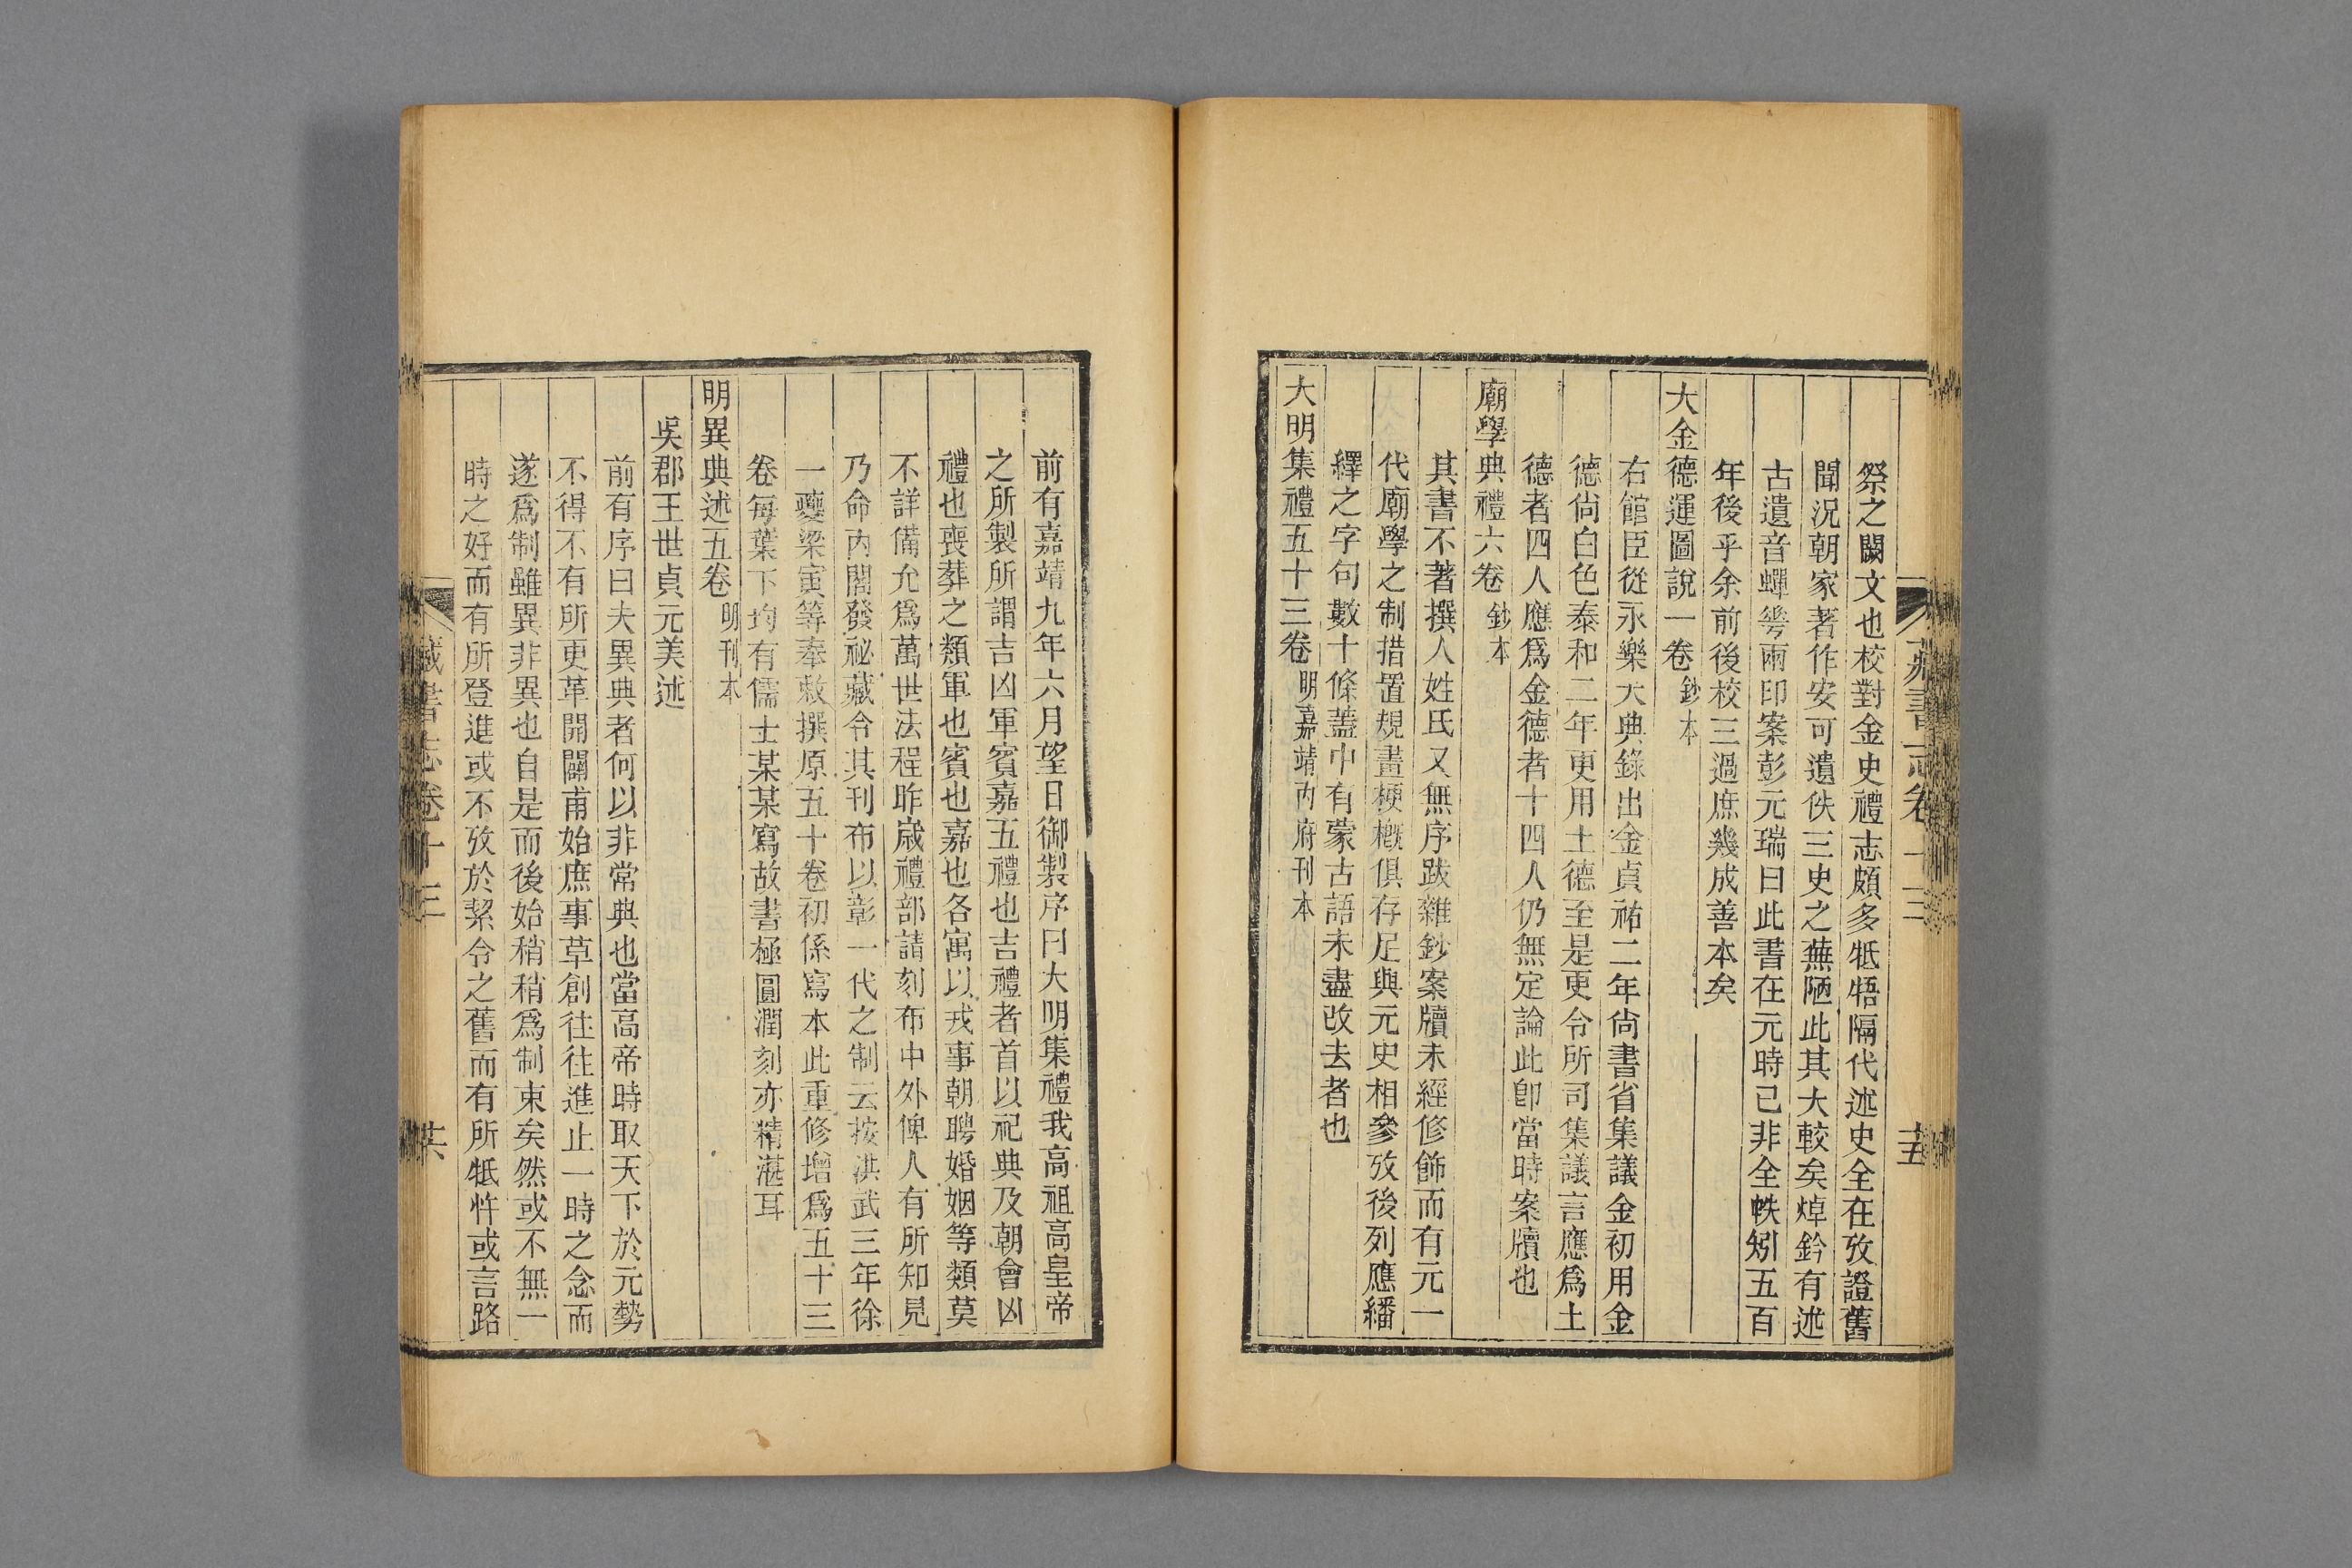 藏書志卷十三
十五
祭之闕文也校對金史禮志頗多牴牾隔代述史全在攷證舊
聞況朝家著作安可遺佚三史之蕪陋此其大較矣焯鈐有述
古遺音蟬㡬兩印案彭元瑞曰此書在元時已非全帙矧五百
年後乎余前後校三過庶幾成善本矣
大金德運圖說一卷 鈔本
右館臣從永樂大典錄出金貞祐二年尙書省集議金初用金
德尙白色泰和二年更用土德至是更令所司集議言應爲土
德者四人應爲金德者十四人仍無定論此卽當時案牘也
廟學典禮六卷 鈔本
其書不著撰人姓氏又無序跋雜鈔案牘未經修飾而有元一
代廟學之制措置規畫梗槪俱存足與元史相參攷後列應繙
繹之字句數十條蓋中有蒙古語未盡改去者也
大明集禮五十三卷 明嘉靖內府刊本
前有嘉靖九年六月望日御製序曰大明集禮我高祖高皇帝
之所製所謂吉凶軍賓嘉五禮也吉禮者首以祀典及朝會凶
禮也喪葬之類軍也賓也嘉也各寓以戎事朝聘婚姻等類莫
不詳備允爲萬世法程昨歲禮部請刻布中外俾人有所知見
乃命內閣發祕藏令其刊布以彰一代之制云按洪武三年徐
一夔梁寅等奉敕撰原五十卷初係寫本此重修增爲五十三
卷每葉下均有儒士某某寫故書極圓潤刻亦精湛耳
明異典述五卷 明刊本
吳郡王世貞元美述
前有序曰夫異典者何以非常典也當高帝時取天下於元勢
不得不有所更革開闢甫始庶事草創往往進止一時之念而
遂爲制雖異非異也自是而後始稍稍爲制束矣然或不無一
時之好而有所登進或不攷於絜令之舊而有所牴忤或言路
藏書志卷十三
十六